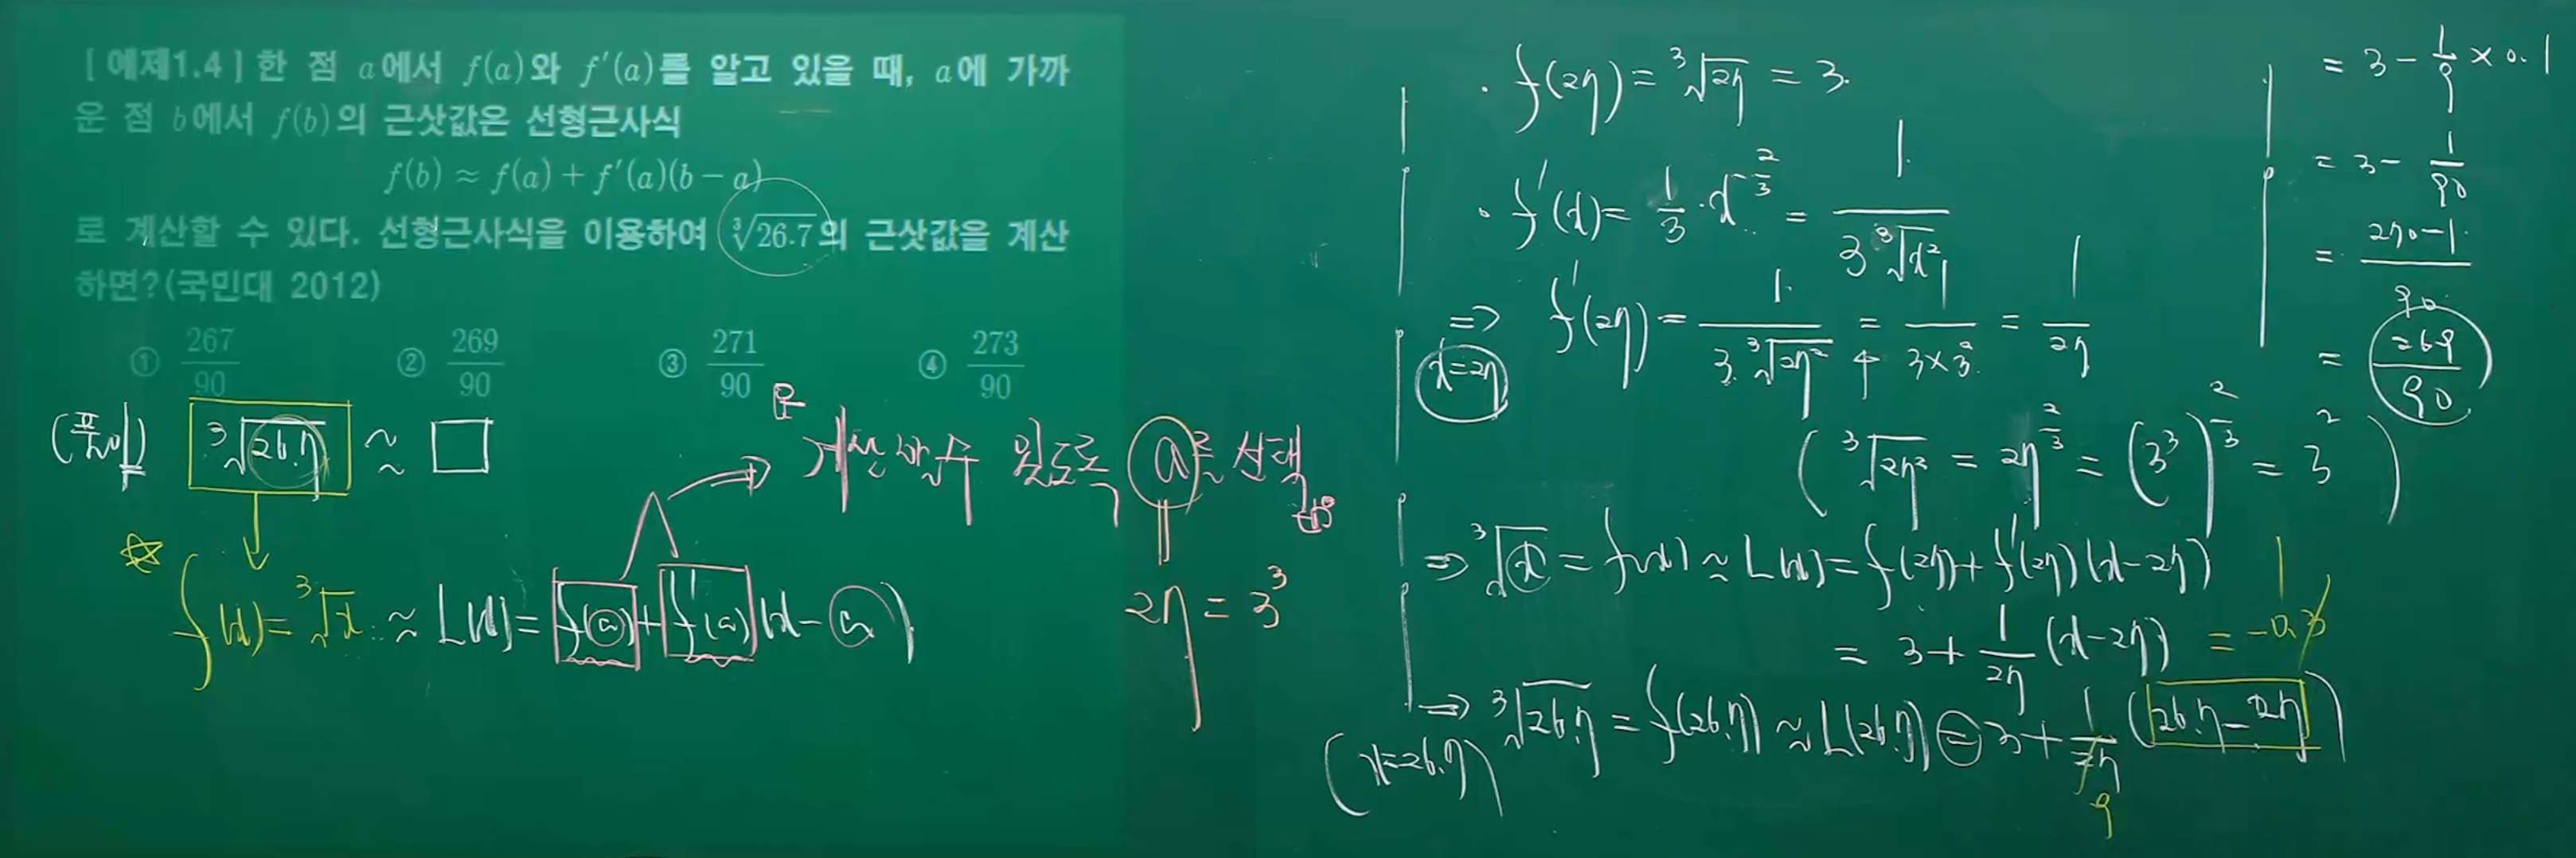 [ 예제1.4 ] 한 점 a에서 f(a)와 f′(a)를 알고 있을 때, a에 가까
운 점 b에서 f(b)의 근삿값은 선형근사식
f(b) ≈ f(a) + f′(a)(b − a)
로 계산할 수 있다. 선형근사식을 이용하여 ∛26.7의 근삿값을 계산
하면?(국민대 2012)
① 267/90 ② 269/90 ③ 271/90 ④ 273/90
(풀이) ∛26.7 ≈ □
f(x) = ∛x ≈ L(x) = f(a) + f′(a)(x − a)
계산할 수 있도록 a를 선택
27 = 3³
· f(27) = ∛27 = 3.
· f′(x) = 1/3 · x^(-2/3) = 1/(3∛x²)
⇒ f′(27) = 1/(3·∛27²) = 1/(3×3²) = 1/27
x=27
( ∛27² = 27^(2/3) = (3³)^(2/3) = 3² )
⇒ ∛x = f(x) ≈ L(x) = f(27) + f′(27)(x − 27)
= 3 + 1/27 (x − 27) = −0.3
1
⇒ ∛26.7 = f(26.7) ≈ L(26.7) = 3 + 1/27 (26.7 − 27)
(x=26.7)
9
= 3 − 1/9 × 0.1
= 3 − 1/90
= (270−1)/90
= 269/90